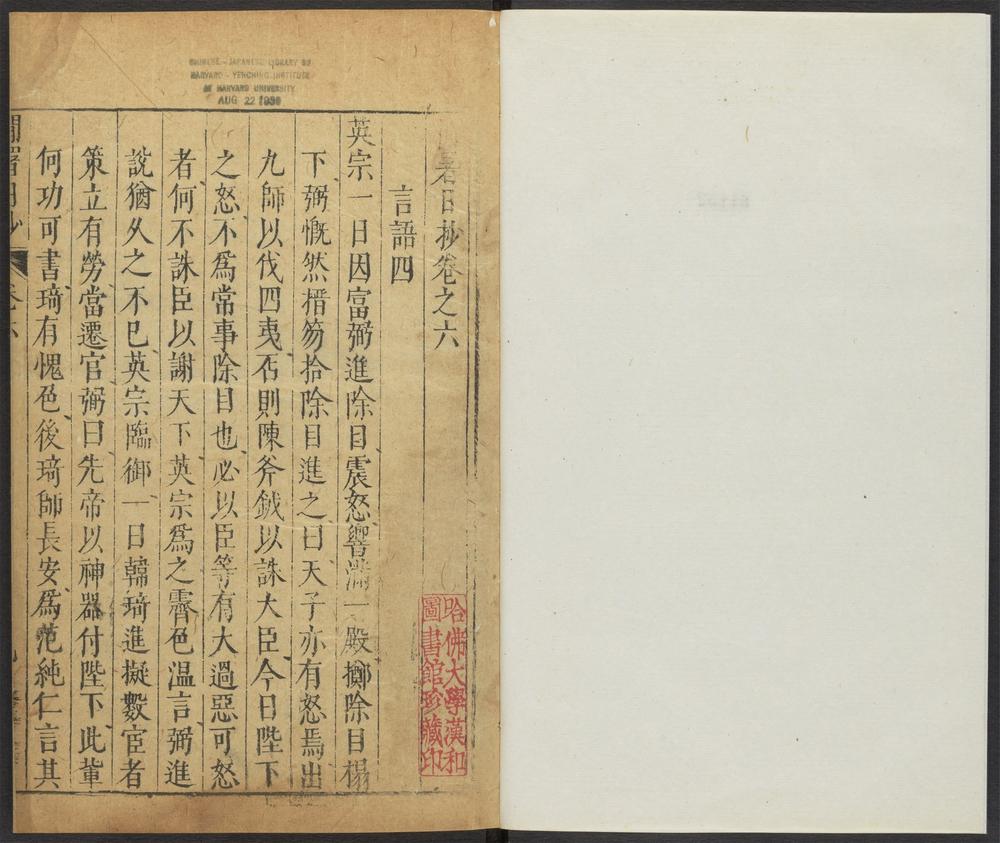 CHINESE - JAPANESE LIBRARY OF
HARVARD - YENCHING INSTITUTE
AT HARVARD UNIVERSITY
AUG 22 1939
暑日抄卷之六
言語四
英宗一日因富弼進除目震怒響滿一殿擲除目榻
下弼慨然搢笏拾除目進之曰天子亦有怒焉出
九師以伐四夷否則陳斧鉞以誅大臣今日陛下
之怒不爲常事除目也必以臣等有大過惡可怒
者何不誅臣以謝天下英宗爲之霽色温言弼進
說猶久之不巳英宗臨御一日韓琦進擬數宦者
策立有勞當遷官弼曰先帝以神器付陛下此軰
何功可書琦有愧色後琦帥長安爲范純仁言其
哈佛大學漢和
圖書館珍藏印